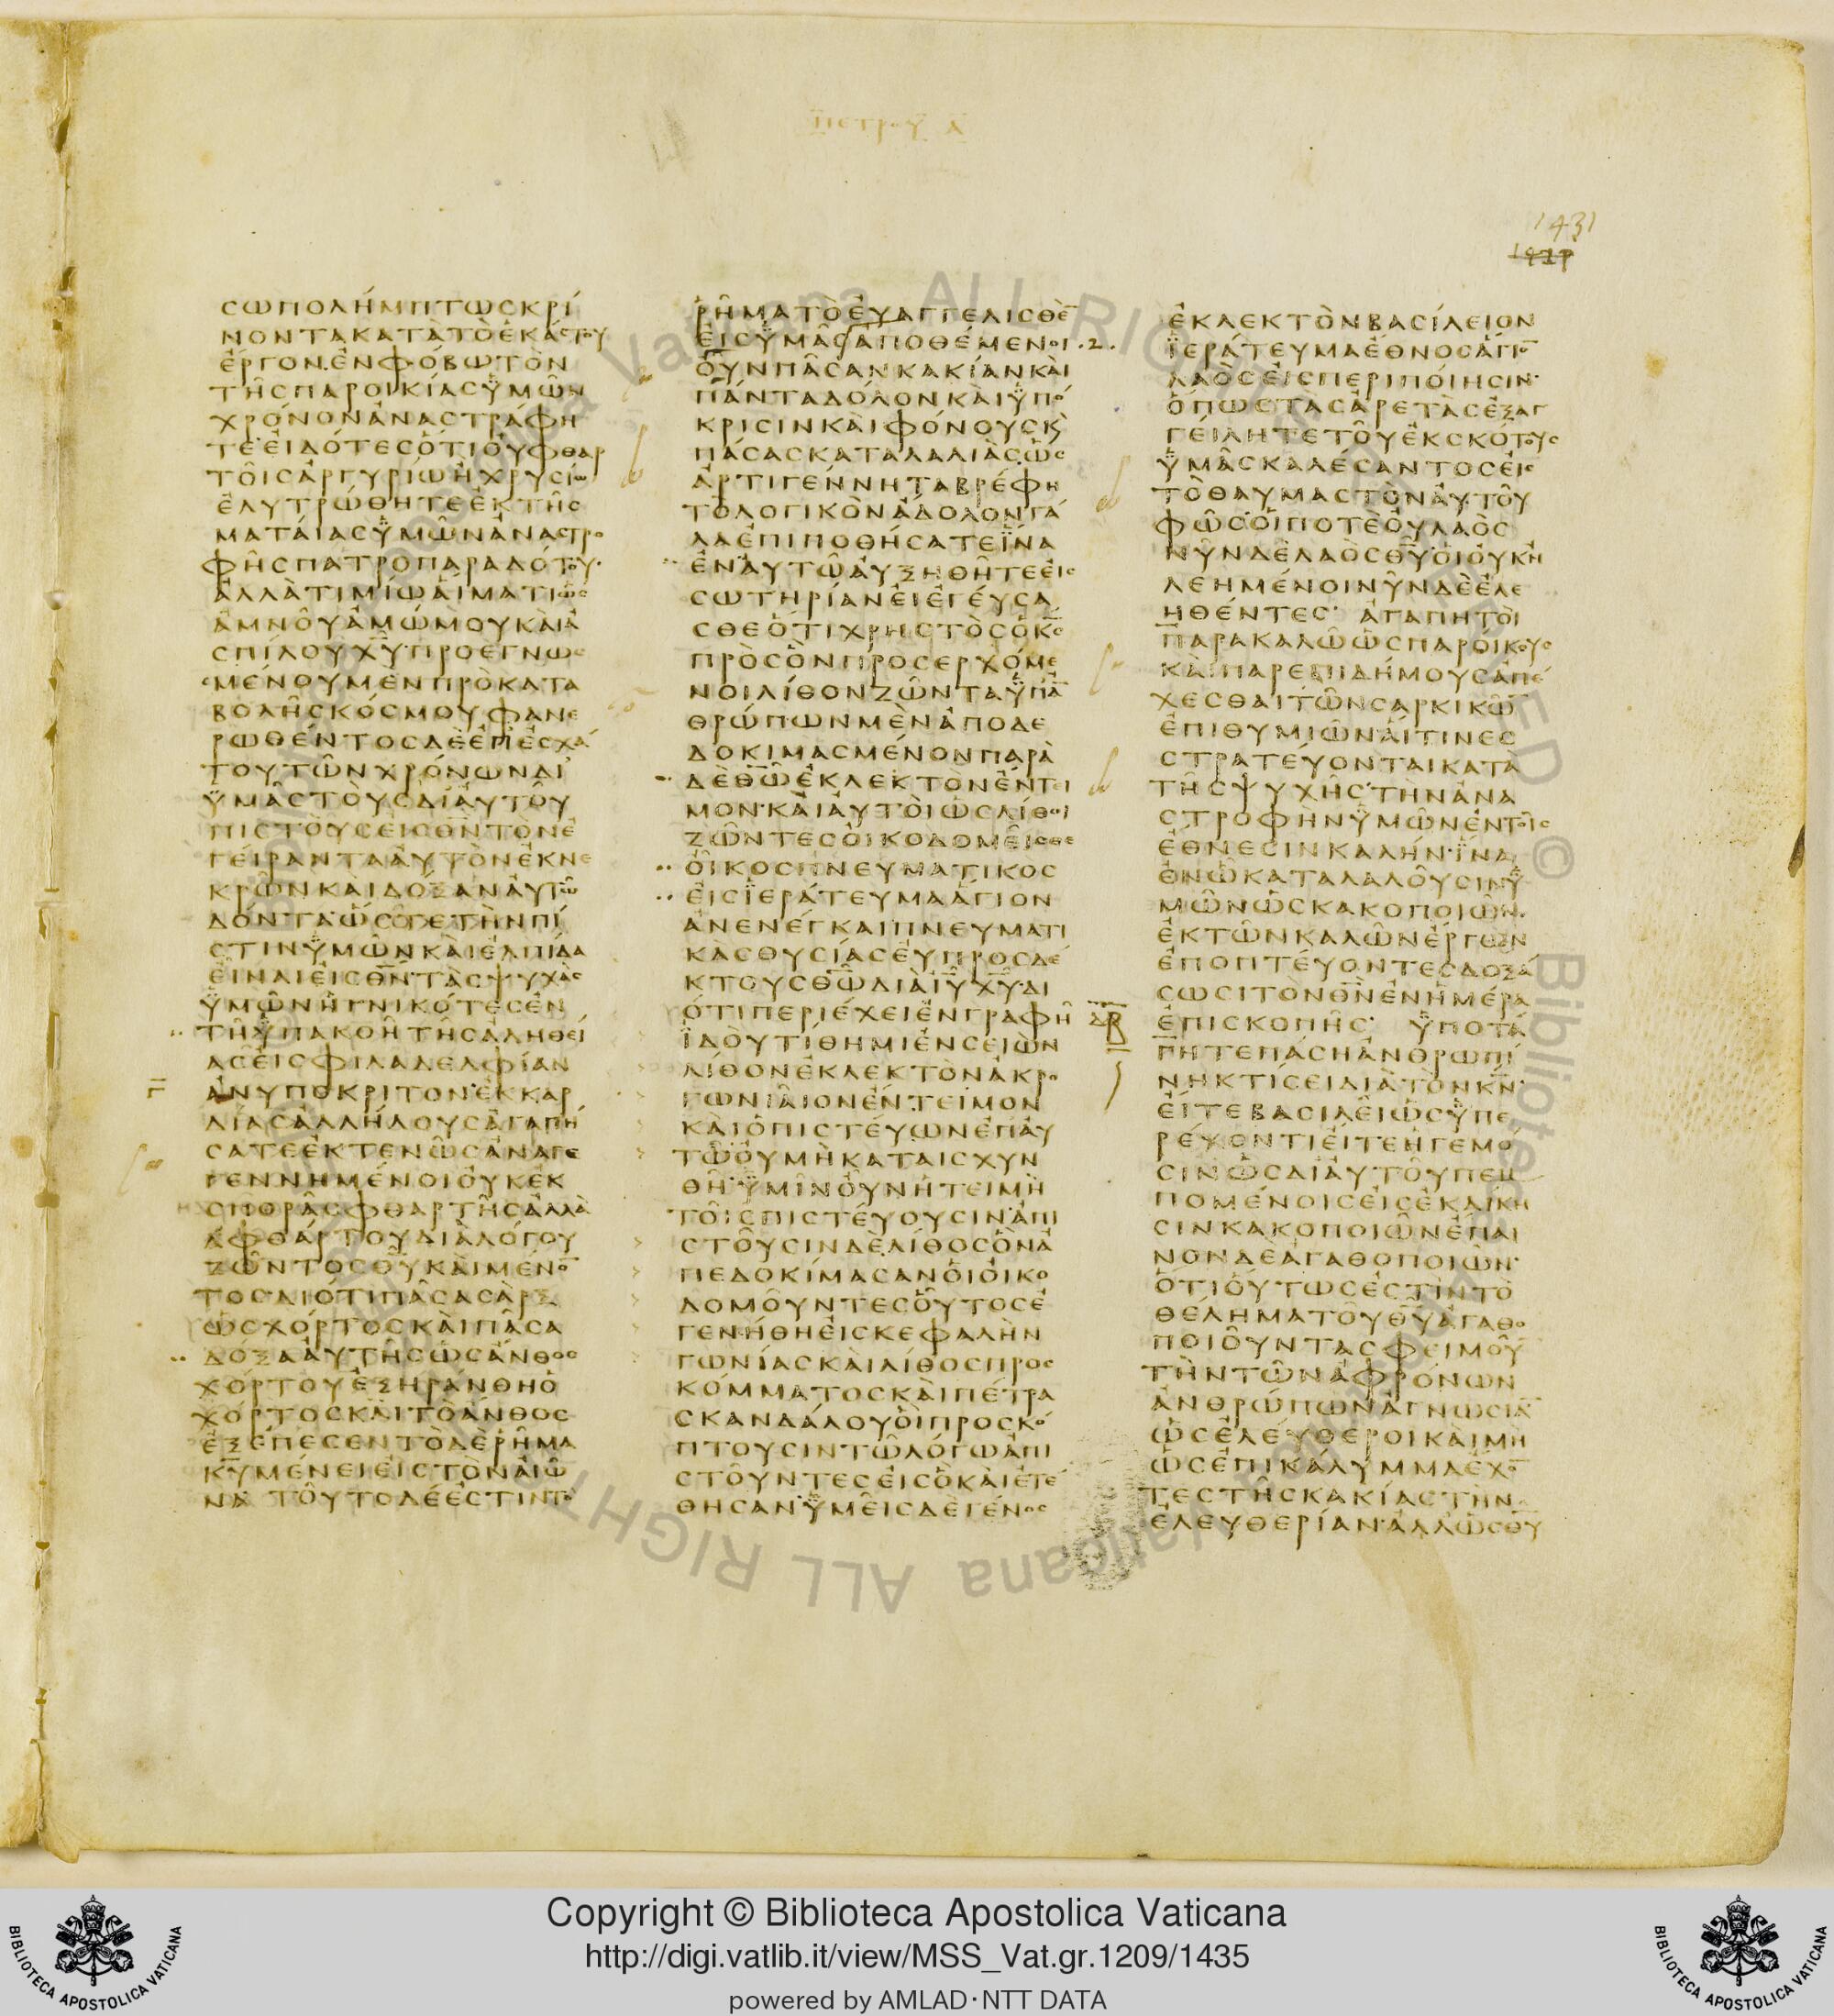 ΠΕΤΡΟΥ Α
1431
ϹΩΠΟΛΗΜΠΤΩϹΚΡΙ
ΝΟΝΤΑΚΑΤΑΤΟΕΚΑϹΤΟΥ
ΕΡΓΟΝΕΝΦΟΒΩΤΟΝ
ΤΗϹΠΑΡΟΙΚΙΑϹΫΜΩΝ
ΧΡΟΝΟΝΑΝΑϹΤΡΑΦΗ
ΤΕΕΙΔΟΤΕϹΟΤΙΟΥΦΘΑΡ
ΤΟΙϹΑΡΓΥΡΙΩΗΧΡΥϹΙΩ
ΕΛΥΤΡΩΘΗΤΕΕΚΤΗϹ
ΜΑΤΑΙΑϹΫΜΩΝΑΝΑϹΤΡΟ
ΦΗϹΠΑΤΡΟΠΑΡΑΔΟΤΟΥ·
ΑΛΛΑΤΙΜΙΩΑΙΜΑΤΙΩϹ
ΑΜΝΟΥΑΜΩΜΟΥΚΑΙΑ
ϹΠΙΛΟΥΧ̅Υ̅·ΠΡΟΕΓΝΩϹ
ΜΕΝΟΥΜΕΝΠΡΟΚΑΤΑ
ΒΟΛΗϹΚΟϹΜΟΥΦΑΝΕ
ΡΩΘΕΝΤΟϹΔΕΕΠΕϹΧΑ
ΤΟΥΤΩΝΧΡΟΝΩΝΔΙ
ΫΜΑϹΤΟΥϹΔΙΑΥΤΟΥ
ΠΙϹΤΟΥϹΕΙϹΘ̅Ν̅ΤΟΝΕ
ΓΕΙΡΑΝΤΑΑΥΤΟΝΕΚΝΕ
ΚΡΩΝΚΑΙΔΟΞΑΝΑΥΤΩ
ΔΟΝΤΑΩϹΤΕΤΗΝΠΙ
ϹΤΙΝΫΜΩΝΚΑΙΕΛΠΙΔΑ
ΕΙΝΑΙΕΙϹΘ̅Ν̅ΤΑϹΨΥΧΑϹ
ΫΜΩΝΗΓΝΙΚΟΤΕϹΕΝ
ΤΗΫΠΑΚΟΗΤΗϹΑΛΗΘΕΙ
ΑϹΕΙϹΦΙΛΑΔΕΛΦΙΑΝ
ΑΝΥΠΟΚΡΙΤΟΝ·ΕΚΚΑΡ
ΔΙΑϹΑΛΛΗΛΟΥϹΑΓΑΠΗ
ϹΑΤΕΕΚΤΕΝΩϹΑΝΑΓΕ
ΓΕΝΝΗΜΕΝΟΙΟΥΚΕΚ
ϹΠΟΡΑϹΦΘΑΡΤΗϹΑΛΛΑ
ΑΦΘΑΡΤΟΥΔΙΑΛΟΓΟΥ
ΖΩΝΤΟϹΘ̅Υ̅ΚΑΙΜΕΝΟ̅
ΤΟϹΔΙΟΤΙΠΑϹΑϹΑΡΞ
ΩϹΧΟΡΤΟϹΚΑΙΠΑϹΑ
ΔΟΞΑΑΥΤΗϹΩϹΑΝΘΟϹ
ΧΟΡΤΟΥΕΞΗΡΑΝΘΗΟ
ΧΟΡΤΟϹΚΑΙΤΟΑΝΘΟϹ
ΕΞΕΠΕϹΕΝΤΟΔΕΡΗΜΑ
Κ̅Υ̅ΜΕΝΕΙΕΙϹΤΟΝΑΙΩ
ΝΑ ΤΟΥΤΟΔΕΕϹΤΙΝΤΟ
ΡΗΜΑΤΟΕΥΑΓΓΕΛΙϹΘΕ̅
ΕΙϹΫΜΑϹΑΠΟΘΕΜΕΝΟΙ ·2·
ΟΥΝΠΑϹΑΝΚΑΚΙΑΝΚΑΙ
ΠΑΝΤΑΔΟΛΟΝΚΑΙΫΠΟ
ΚΡΙϹΙΝΚΑΙΦΟΝΟΥϹΚ
ΠΑϹΑϹΚΑΤΑΛΑΛΙΑϹΩϹ
ΑΡΤΙΓΕΝΝΗΤΑΒΡΕΦΗ
ΤΟΛΟΓΙΚΟΝΑΔΟΛΟΝΓΑ
ΛΑΕΠΙΠΟΘΗϹΑΤΕΪΝΑ
ΕΝΑΥΤΩΑΥΞΗΘΗΤΕΕΙϹ
ϹΩΤΗΡΙΑΝΕΙΕΓΕΥϹΑ
ϹΘΕΟΤΙΧΡΗϹΤΟϹΟΚ̅Ϲ̅
ΠΡΟϹΟΝΠΡΟϹΕΡΧΟΜΕ
ΝΟΙΛΙΘΟΝΖΩΝΤΑΫΠΑ̅
ΘΡΩΠΩΝΜΕΝΑΠΟΔΕ
ΔΟΚΙΜΑϹΜΕΝΟΝΠΑΡΑ
ΔΕΘ̅Ω̅ΕΚΛΕΚΤΟΝΕΝΤΙ
ΜΟΝ·ΚΑΙΑΥΤΟΙΩϹΛΙΘΟΙ
ΖΩΝΤΕϹΟΙΚΟΔΟΜΕΙϹΘΕ
ΟΙΚΟϹΠΝΕΥΜΑΤΙΚΟϹ
ΕΙϹΪΕΡΑΤΕΥΜΑΑΓΙΟΝ
ΑΝΕΝΕΓΚΑΙΠΝΕΥΜΑΤΙ
ΚΑϹΘΥϹΙΑϹΕΥΠΡΟϹΔΕ
ΚΤΟΥϹΘ̅Ω̅ΔΙΑΙ̅Υ̅Χ̅Υ̅·ΔΙ
ΟΤΙΠΕΡΙΕΧΕΙΕΝΓΡΑΦΗ
ΪΔΟΥΤΙΘΗΜΙΕΝϹΕΙΩΝ
ΛΙΘΟΝΕΚΛΕΚΤΟΝΑΚΡΟ
ΓΩΝΙΑΙΟΝΕΝΤΕΙΜΟΝ
ΚΑΙΟΠΙϹΤΕΥΩΝΕΠΑΥ
ΤΩΟΥΜΗΚΑΤΑΙϹΧΥΝ
ΘΗ·ΫΜΙΝΟΥΝΗΤΕΙΜΗ
ΤΟΙϹΠΙϹΤΕΥΟΥϹΙΝ·ΑΠΙ
ϹΤΟΥϹΙΝΔΕΛΙΘΟϹΟΝΑ
ΠΕΔΟΚΙΜΑϹΑΝΟΙΟΙΚΟ
ΔΟΜΟΥΝΤΕϹΟΥΤΟϹΕ
ΓΕΝΗΘΗΕΙϹΚΕΦΑΛΗΝ
ΓΩΝΙΑϹΚΑΙΛΙΘΟϹΠΡΟϹ
ΚΟΜΜΑΤΟϹΚΑΙΠΕΤΡΑ
ϹΚΑΝΔΑΛΟΥΟΙΠΡΟϹΚΟ
ΠΤΟΥϹΙΝΤΩΛΟΓΩΑΠΙ
ϹΤΟΥΝΤΕϹΕΙϹΟΚΑΙΕΤΕ
ΘΗϹΑΝ·ΫΜΕΙϹΔΕΓΕΝΟϹ
ΕΚΛΕΚΤΟΝΒΑϹΙΛΕΙΟΝ
ΪΕΡΑΤΕΥΜΑΕΘΝΟϹΑΓΙΟ̅
ΛΑΟϹΕΙϹΠΕΡΙΠΟΙΗϹΙΝ·
ΟΠΩϹΤΑϹΑΡΕΤΑϹΕΞΑΓ
ΓΕΙΛΗΤΕΤΟΥΕΚϹΚΟΤΟΥϹ
ΫΜΑϹΚΑΛΕϹΑΝΤΟϹΕΙϹ
ΤΟΘΑΥΜΑϹΤΟΝΑΥΤΟΥ
ΦΩϹ·ΟΙΠΟΤΕΟΥΛΑΟϹ
ΝΥΝΔΕΛΑΟϹΘ̅Υ̅·ΟΙΟΥΚΗ
ΛΕΗΜΕΝΟΙΝΥΝΔΕΕΛΕ
ΗΘΕΝΤΕϹ· ΑΓΑΠΗΤΟΙ
ΠΑΡΑΚΑΛΩΩϹΠΑΡΟΙΚΟΥϹ
ΚΑΙΠΑΡΕΠΙΔΗΜΟΥϹΑΠΕ
ΧΕϹΘΑΙΤΩΝϹΑΡΚΙΚΩ̅
ΕΠΙΘΥΜΙΩΝΑΙΤΙΝΕϹ
ϹΤΡΑΤΕΥΟΝΤΑΙΚΑΤΑ
ΤΗϹΨΥΧΗϹ·ΤΗΝΑΝΑ
ϹΤΡΟΦΗΝΫΜΩΝΕΝΤΟΙϹ
ΕΘΝΕϹΙΝΚΑΛΗΝ·ΪΝΑ
ΕΝΩΚΑΤΑΛΑΛΟΥϹΙΝΫ
ΜΩΝΩϹΚΑΚΟΠΟΙΩΝ
ΕΚΤΩΝΚΑΛΩΝΕΡΓΩΝ
ΕΠΟΠΤΕΥΟΝΤΕϹΔΟΞΑ
ϹΩϹΙΤΟΝΘ̅Ν̅ΕΝΗΜΕΡΑ
ΕΠΙϹΚΟΠΗϹ· ΫΠΟΤΑ
ΓΗΤΕΠΑϹΗΑΝΘΡΩΠΙ
ΝΗΚΤΙϹΕΙΔΙΑΤΟΝΚ̅Ν̅·
ΕΙΤΕΒΑϹΙΛΕΙΩϹΫΠΕ
ΡΕΧΟΝΤΙΕΙΤΕΗΓΕΜΟ
ϹΙΝΩϹΔΙΑΥΤΟΥΠΕΜ
ΠΟΜΕΝΟΙϹΕΙϹΕΚΔΙΚΗ
ϹΙΝΚΑΚΟΠΟΙΩΝΕΠΑΙ
ΝΟΝΔΕΑΓΑΘΟΠΟΙΩΝ·
ΟΤΙΟΥΤΩϹΕϹΤΙΝΤΟ
ΘΕΛΗΜΑΤΟΥΘ̅Υ̅ΑΓΑΘΟ
ΠΟΙΟΥΝΤΑϹΦΕΙΜΟΥ̅
ΤΗΝΤΩΝΑΦΡΟΝΩΝ
ΑΝΘΡΩΠΩΝΑΓΝΩϹΙΑ̅
ΩϹΕΛΕΥΘΕΡΟΙΚΑΙΜΗ
ΩϹΕΠΙΚΑΛΥΜΜΑΕΧΟ̅
ΤΕϹΤΗϹΚΑΚΙΑϹΤΗΝ
ΕΛΕΥΘΕΡΙΑΝ·ΑΛΛΩϹΘ̅Υ̅
Copyright © Biblioteca Apostolica Vaticana
http://digi.vatlib.it/view/MSS_Vat.gr.1209/1435
powered by AMLAD·NTT DATA
BIBLIOTECA APOSTOLICA VATICANA
BIBLIOTECA APOSTOLICA VATICANA